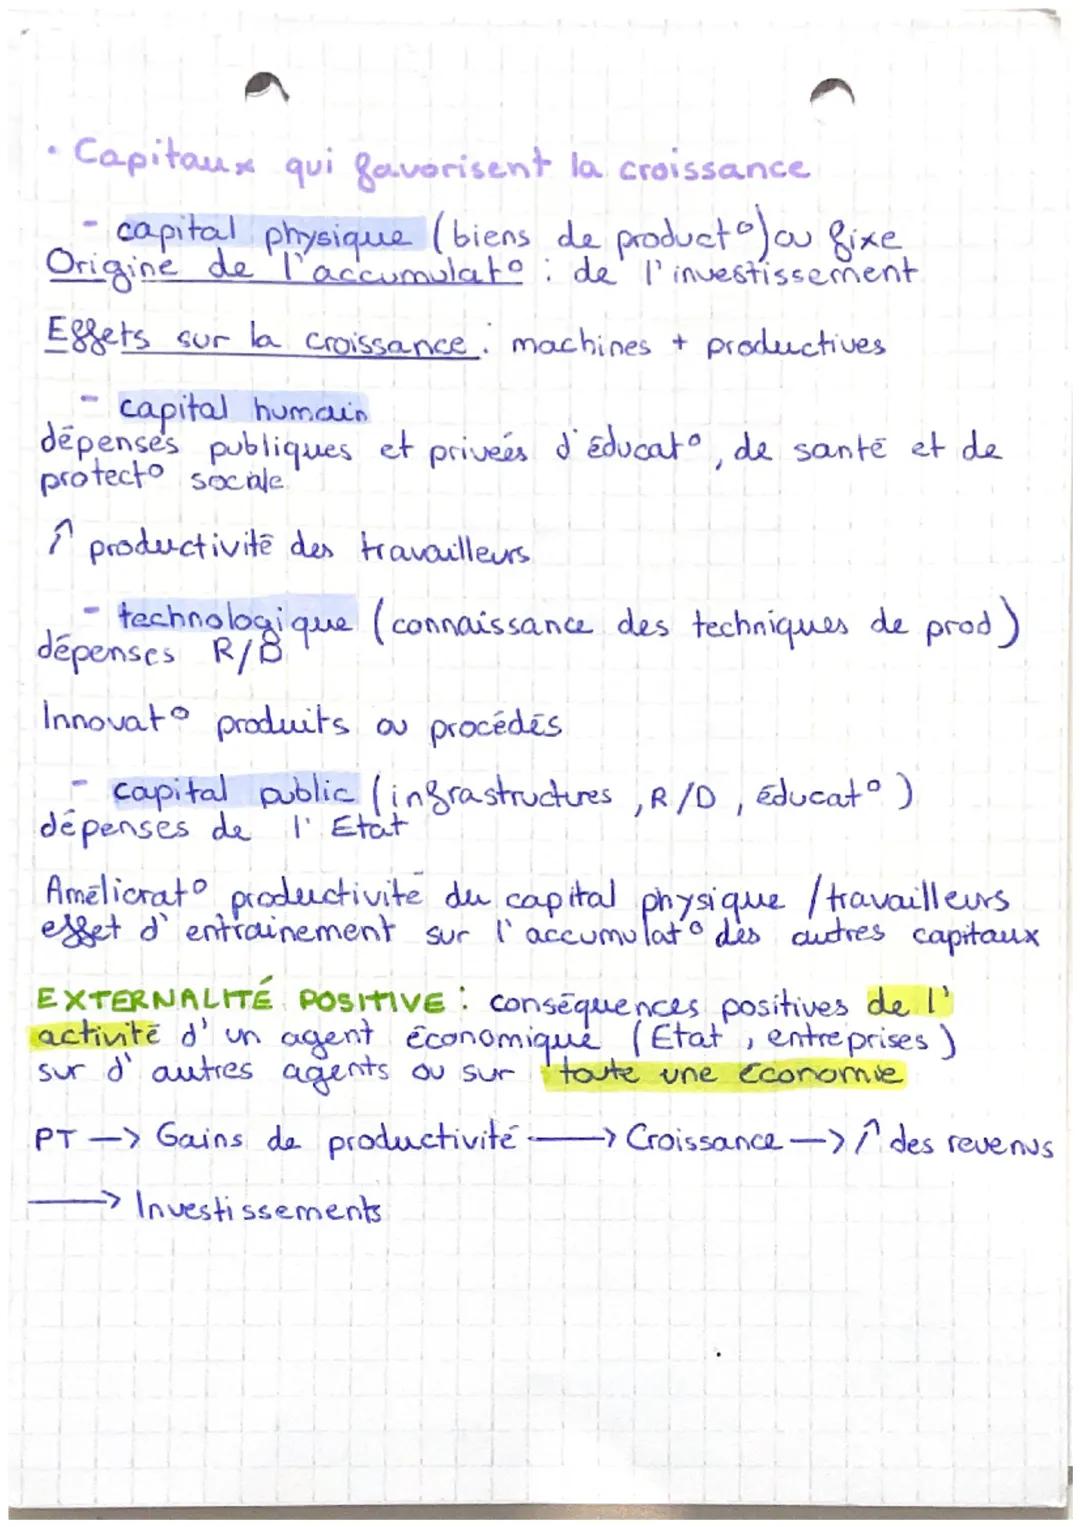 • Capitaux qui favorisent la croissance
- capital physique (biens de product°) ou fixe
Origine de l'accumulat° : de l'investissement
Effets sur la croissance : machines + productives
- capital humain
dépenses publiques et privées d'éducat°, de santé et de
protect° sociale
↑ productivité des travailleurs
- technologique (connaissance des techniques de prod)
dépenses R/D
Innovat° produits ou procédés
- capital public (infrastructures, R/D, éducat°)
dépenses de l'Etat
Améliorat° productivité du capital physique / travailleurs
effet d'entrainement sur l'accumulat° des autres capitaux
EXTERNALITÉ POSITIVE : conséquences positives de l'
activité d'un agent économique (Etat, entreprises)
sur d'autres agents ou sur toute une économie
PT —> Gains de productivité —> Croissance —> ↑ des revenus
—> Investissements